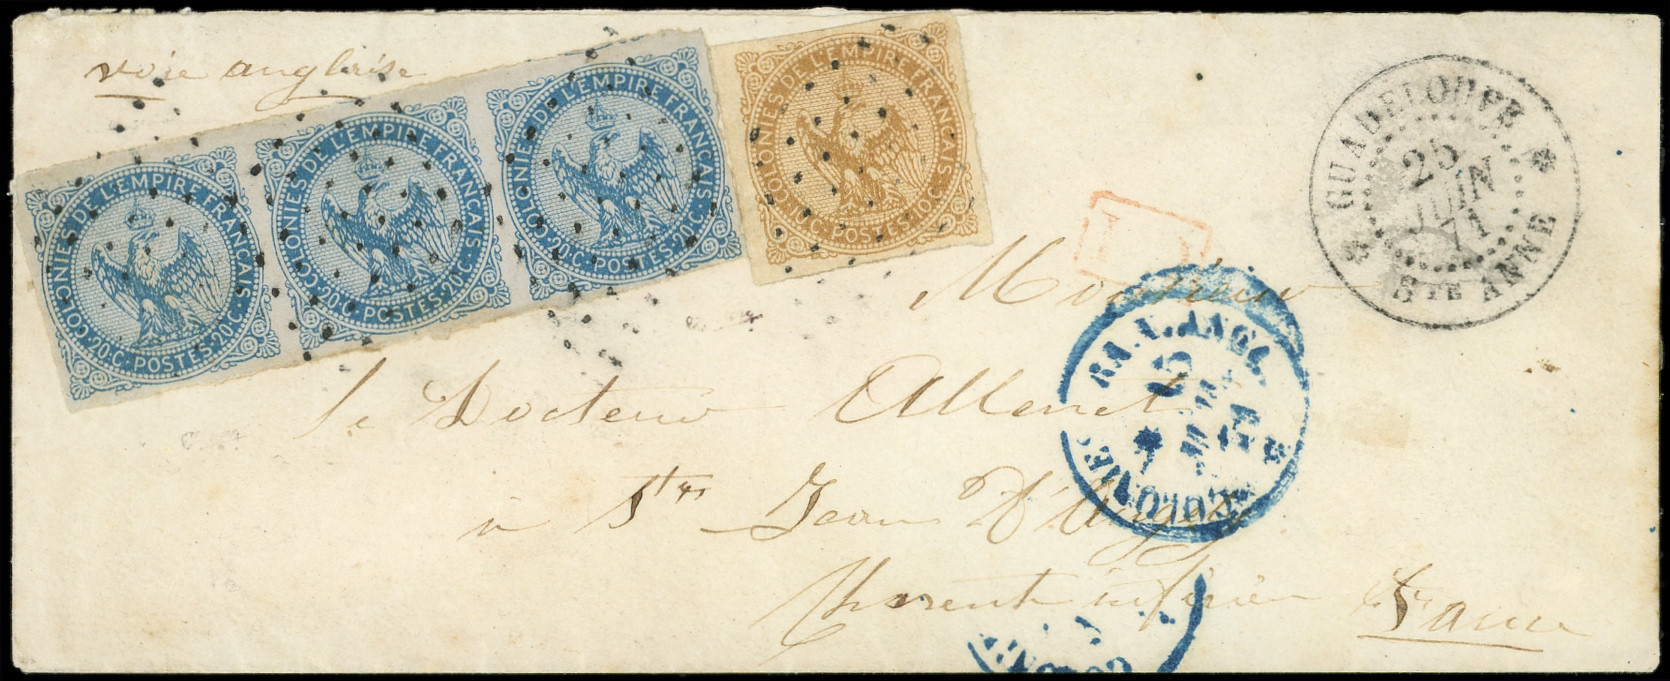 voie anglaise
COLONIES DE L'EMPIRE FRANÇAIS
·20·C·POSTES·20·C·
COLONIES DE L'EMPIRE FRANÇAIS
·20·C·POSTES·20·C·
COLONIES DE L'EMPIRE FRANÇAIS
·20·C·POSTES·20·C·
COLONIES DE L'EMPIRE FRANÇAIS
·10·C·POSTES·10·C·
GUADELOUPE
25
JUIN
71
STE ANNE
Monsieur
le Docteur Allenet
à St Jean D'Angely
Charente inférieure France
COLONIES RA. V. ANGL.